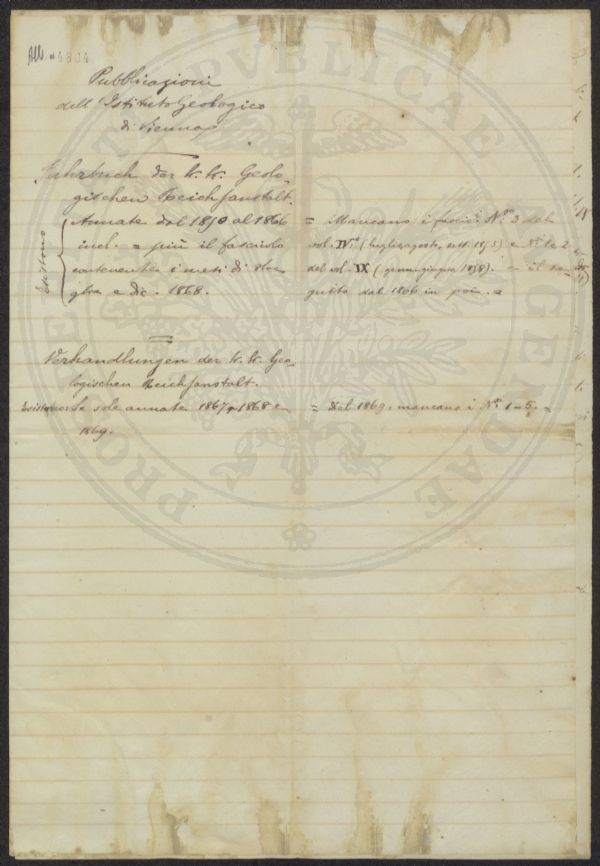 All. 4304
Pubblicazioni
dell'Istituto Geologico
di Vienna
Jahrbuch der k. k. Geolo-
gischen Reichsanstalt.
Esistono
Annate dal 1850 al 1866
incl. = più il fascicolo
contenente i mesi di
e dic. 1868.
= Mancano i fascic. Nº 3 del
vol. IVº (luglio, agosto, sett. 1853) e Nº 1 e 2
del vol. IX (genn. giugno 1858). = il se-
guito dal 1866 in poi. =
Verhandlungen der k. k. Geo-
logischen Reichsanstalt.
Esistono le sole annate 1867, 1868 e
1869.
= Del 1869. mancano i Nⁱ 1-5. =
PRO REIPUBLICAE AGENDAE